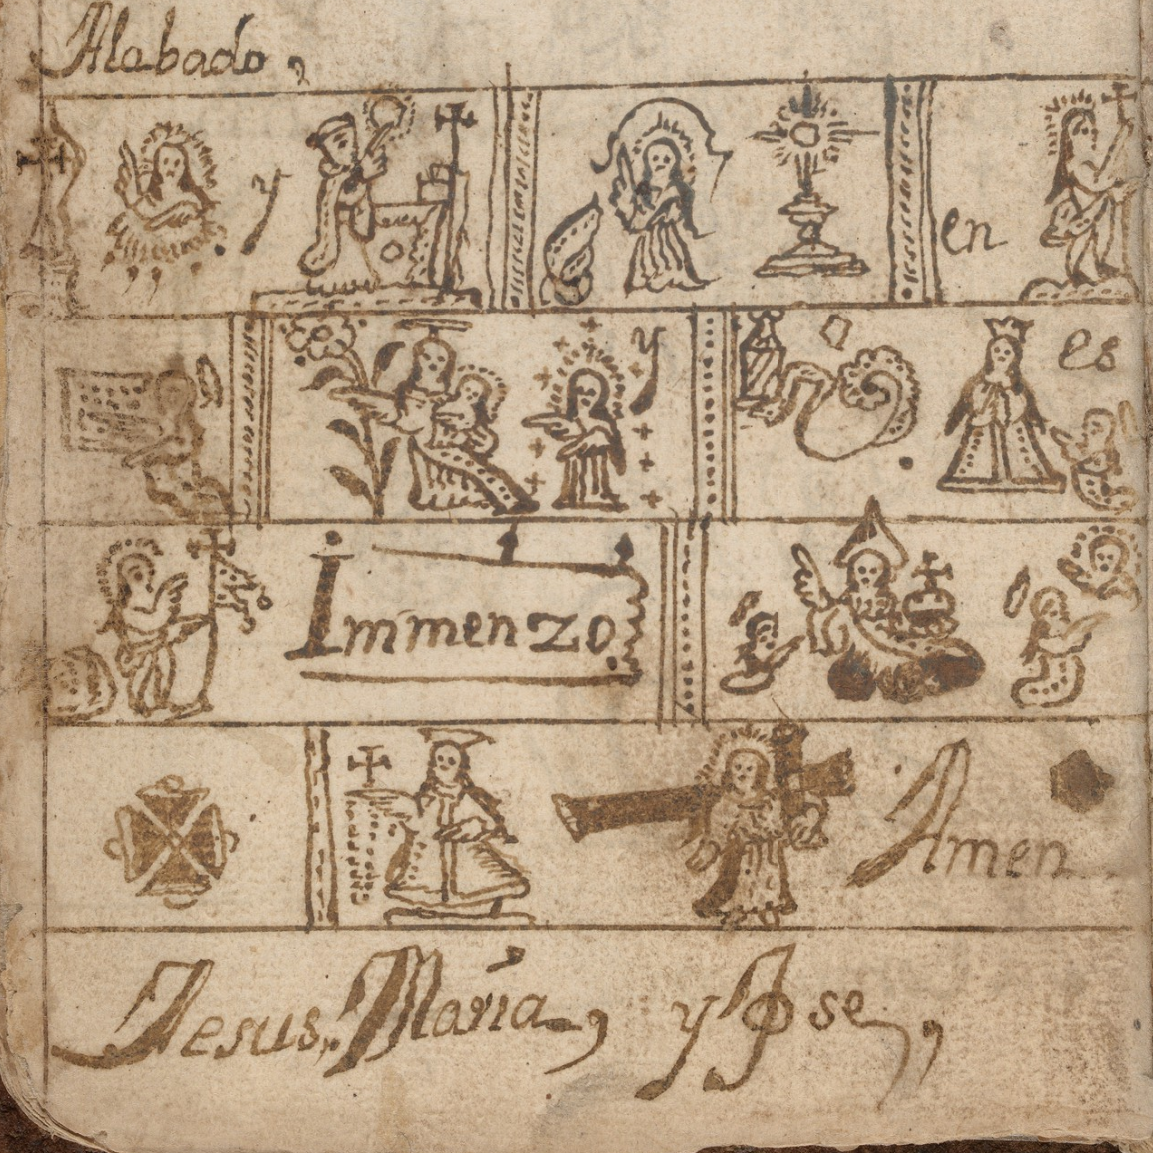 Alabado,
y en
y es
Immenzo.
Amen
Jesus, Maria, y Jose,